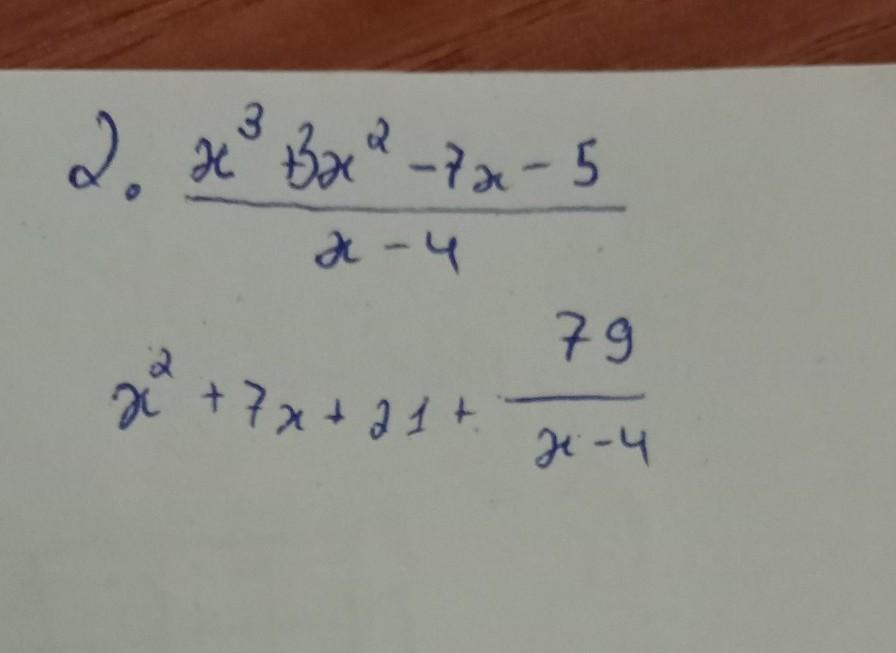 2. x³ + 3x² - 7x - 5
x - 4
79
x² + 7x + 21 +
x - 4